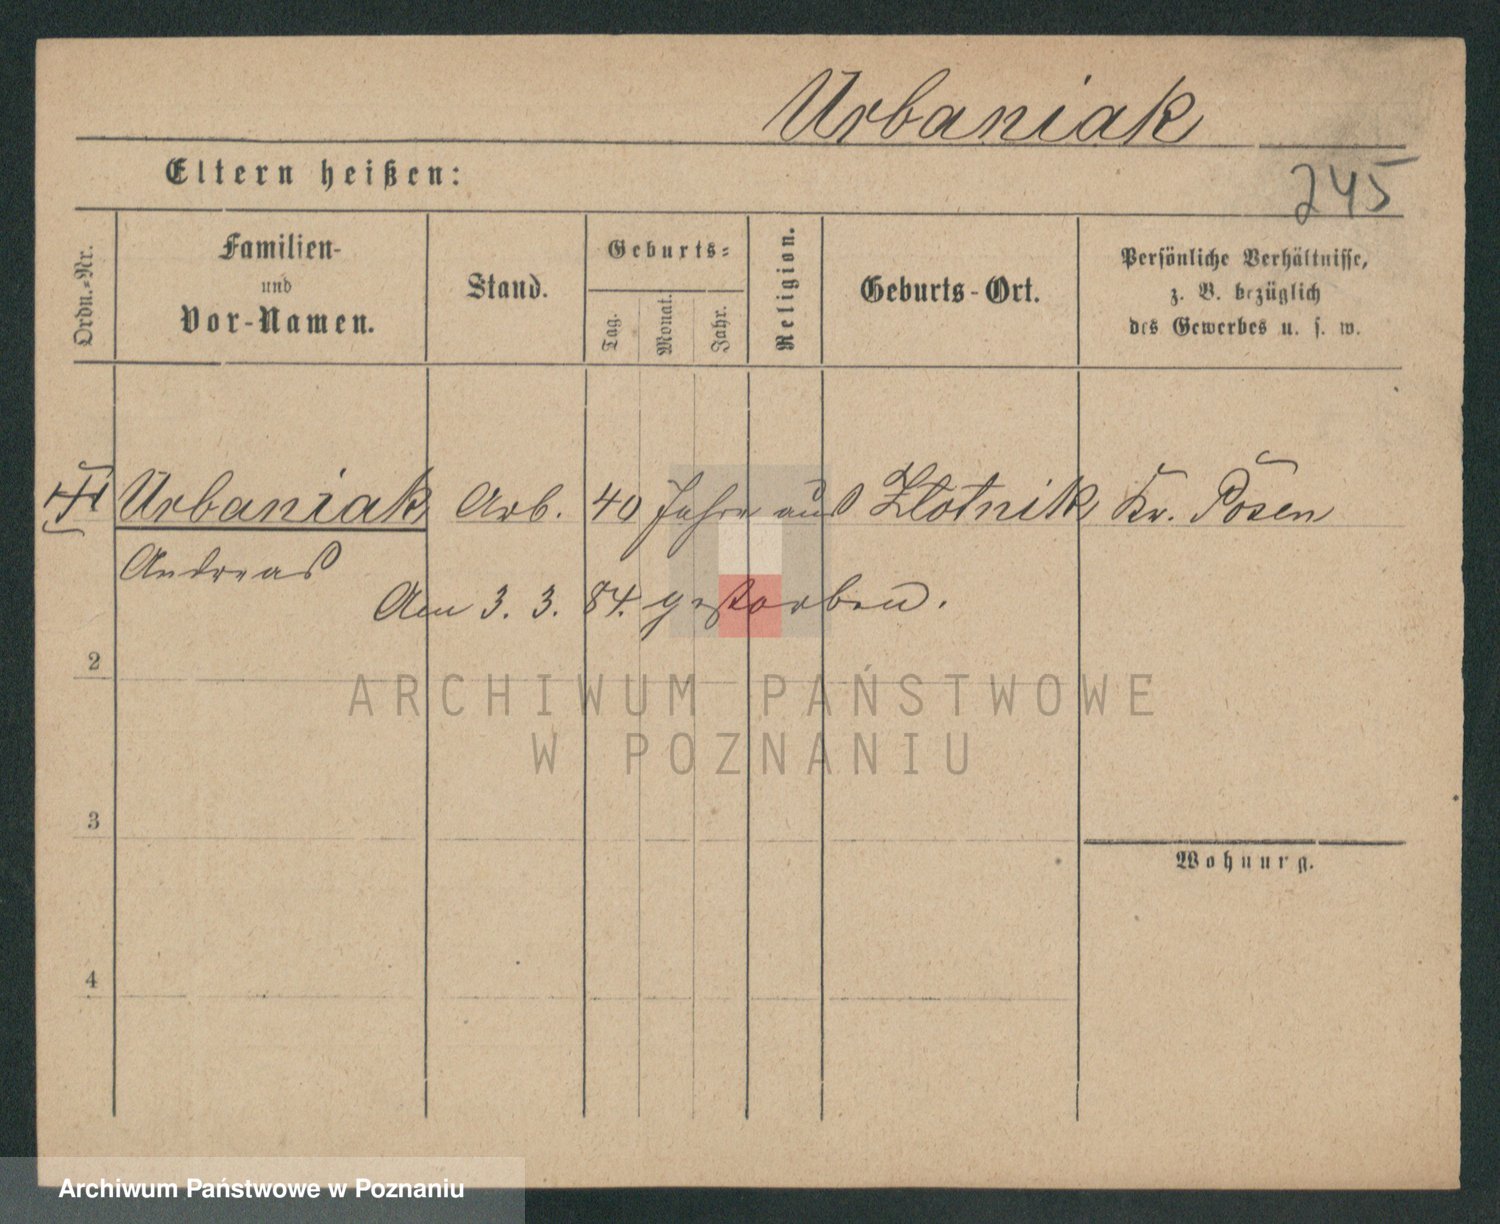 Urbaniak
Eltern heißen:
245
Ordn.-Nr.
Familien-
und
Vor-Namen.
Stand.
Geburts-
Tag.
Monat.
Jahr.
Religion.
Geburts-Ort.
Persönliche Verhältnisse,
z. B. bezüglich
des Gewerbes u. s. w.
Urbaniak Arb. 40 Jahre aus Złotnik Kr. Posen
Andreas
Am 3. 3. 84. gestorben.
2
ARCHIWUM PAŃSTWOWE
W POZNANIU
3
Wohnung.
4
Archiwum Państwowe w Poznaniu